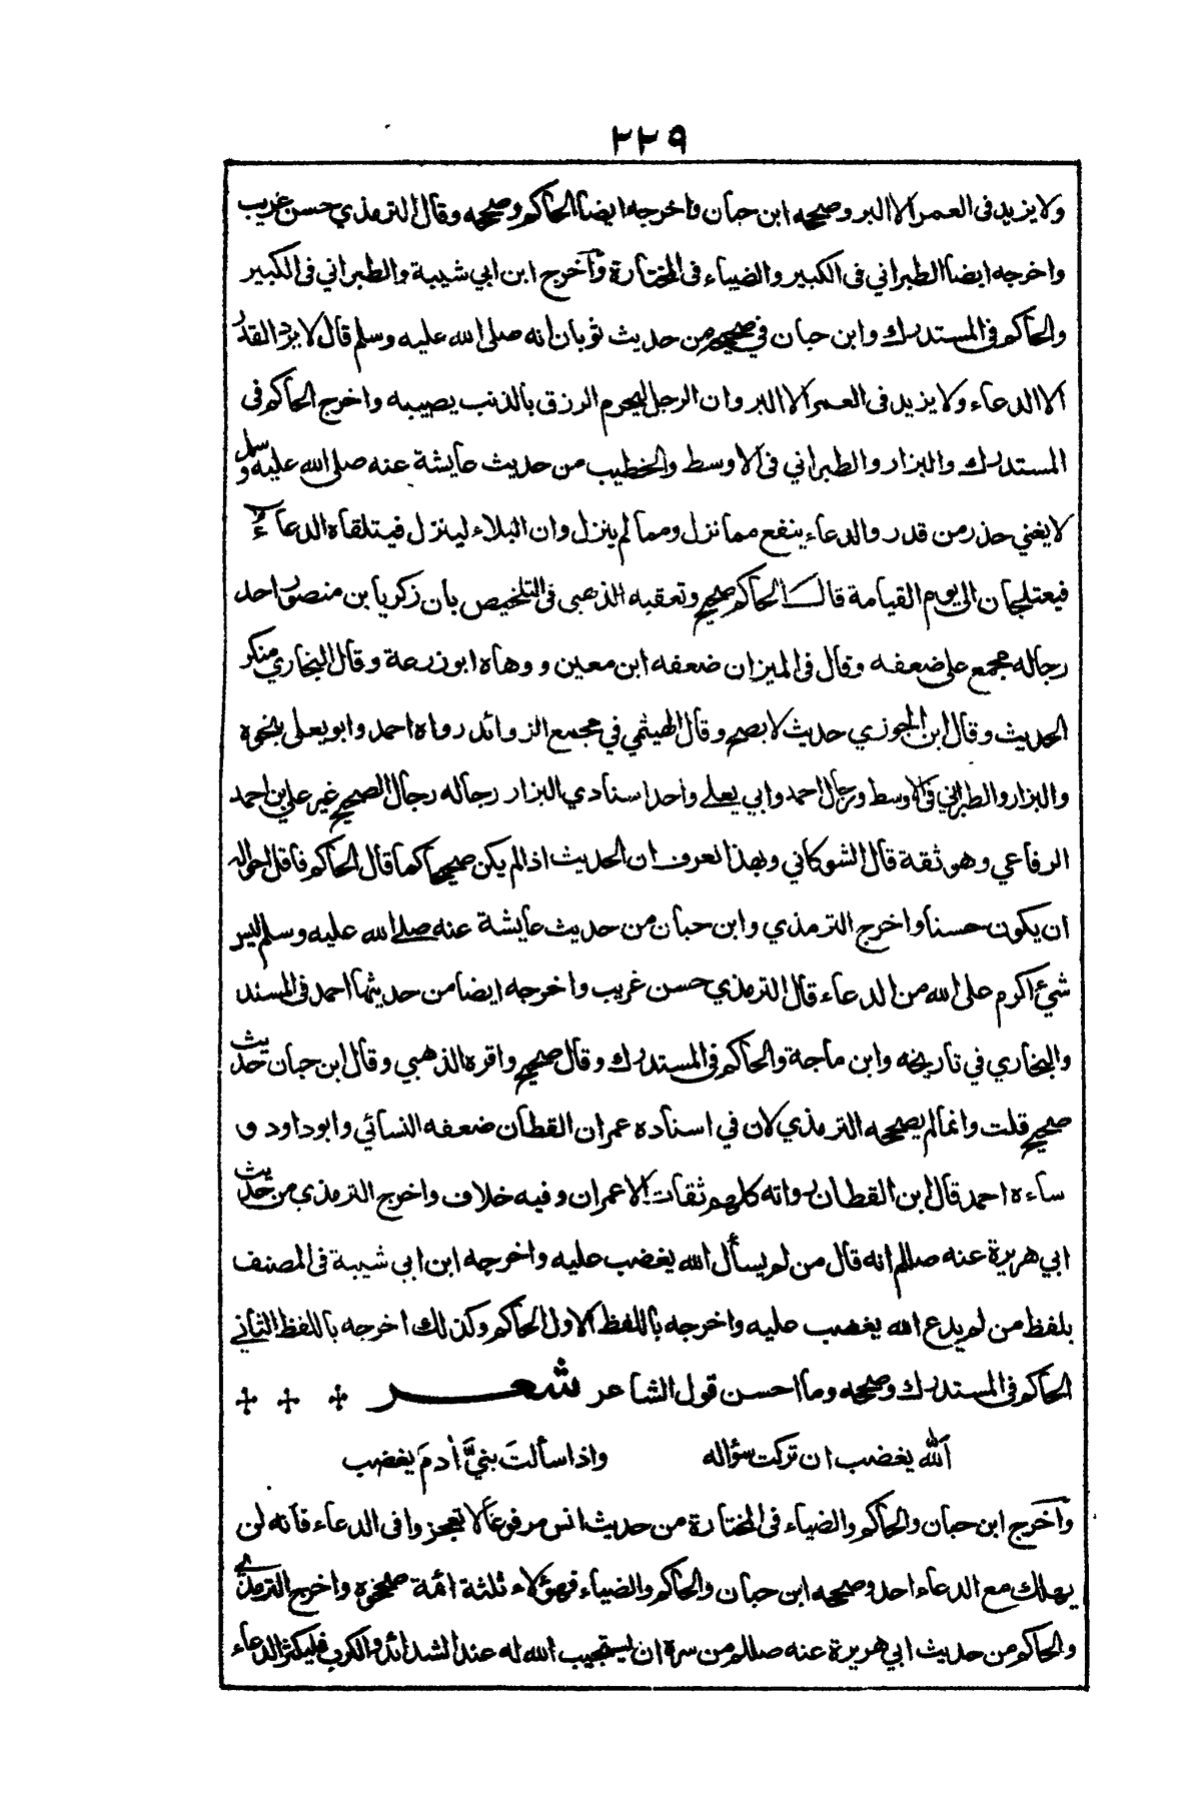 ٢٢٩
ولا يزيد فى العمر الا البر وصححه ابن حبان واخرجه ايضا الحاكم وصححه وقال الترمذي حسن غريب
واخرجه ايضا الطبراني فى الكبير والضياء فى المختارة وآخرج ابن ابي شيبة والطبراني فى الكبير
والحاكم فى المستدرك وابن حبان في صحيحه من حديث ثوبان انه صلى الله عليه وسلم قال لا يرد القدر
الا الدعاء ولا يزيد فى العمر الا البر وان الرجل ليحرم الرزق بالذنب يصيبه واخرج الحاكم فى
المستدرك والبزار والطبراني فى الاوسط والخطيب من حديث عايشة عنه صلى الله عليه وسلم
لا يغني حذر من قدر والدعاء ينفع مما نزل ومما لم ينزل وان البلاء لينزل فيتلقاه الدعاء
فيعتلجان الى يوم القيامة قال الحاكم صحيح وتعقبه الذهبى فى التلخيص بان زكريا بن منصور احد
رجاله مجمع على ضعفه وقال فى الميزان ضعفه ابن معين ووهاه ابو زرعة وقال البخاري منكر
الحديث وقال ابن الجوزي حديث لا يصح وقال الهيثمي في مجمع الزوائد رواه احمد وابو يعلى بنحوه
والبزار والطبراني فى الاوسط ورجال احمد وابي يعلے واحد اسنادي البزار رجاله رجال الصحيح غير علي بن احمد
الرفاعي وهو ثقة قال الشوكاني وبهذا تعرف ان الحديث اذا لم يكن صحيحا كما قال الحاكم فاقل احواله
ان يكون حسنا واخرج الترمذي وابن حبان من حديث عايشة عنه صلے الله عليه وسلم ليس
شيء اكرم على الله من الدعاء قال الترمذي حسن غريب واخرجه ايضا من حديثها احمد فى المسند
والبخاري في تاريخه وابن ماجة والحاكم فى المستدرك وقال صحيح واقره الذهبي وقال ابن حبان حديث
صحيح قلت وانما لم يصححه الترمذي لان في اسناده عمران القطان ضعفه النسائي وابو داود و
ساءه احمد قال ابن القطان رواته كلهم ثقات الا عمران وفيه خلاف واخرج الترمذي من حديث
ابي هريرة عنه صللم انه قال من لم يسأل الله يغضب عليه واخرجه ابن ابي شيبة فى المصنف
بلفظ من لم يدع الله يغضب عليه واخرجه باللفظ الاول الحاكم وكذلك اخرجه باللفظ الثاني
الحاكم فى المستدرك وصححه وما احسن قول الشاعر شعر
اَلله يغضب ان تركت سؤاله واذا سألتَ بنيَّ اٰدمَ يغضب
وآخرج ابن حبان والحاكم والضياء فى المختارة من حديث انس مرفوعًا لا تعجزوا فى الدعاء فانه لن
يهلك مع الدعاء احد وصححه ابن حبان والحاكم والضياء فهؤلاء ثلثة ائمة صححوه واخرج الترمذي
والحاكم من حديث ابي هريرة عنه صللم من سره ان يستجيب الله له عند الشدائد والكرب فليكثر الدعاء